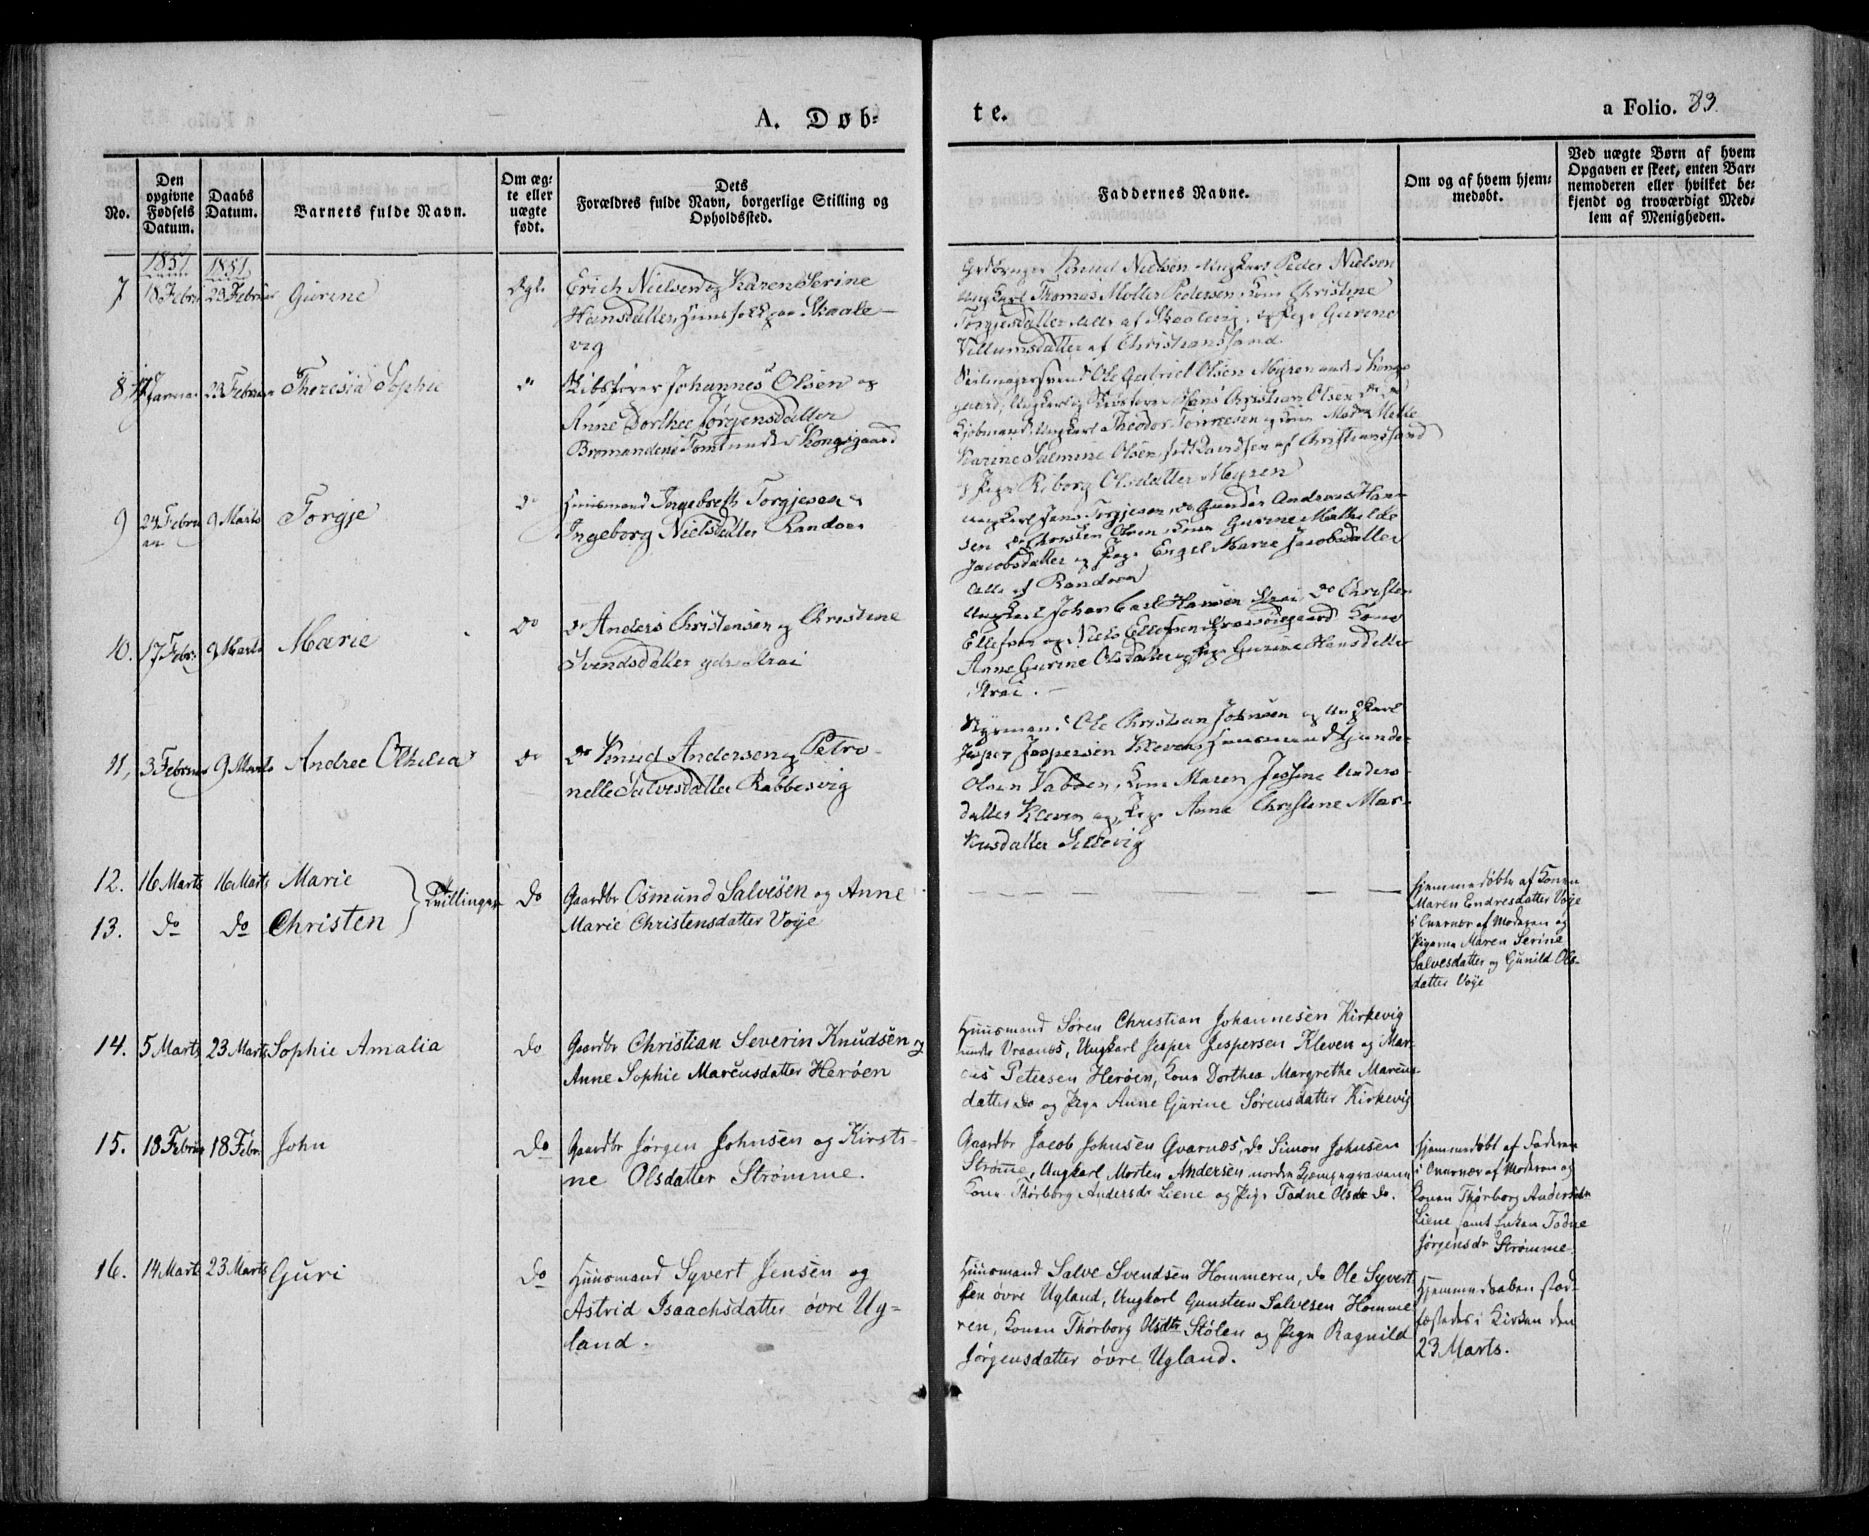 A. Døb-
te.
a Folio. 83.
No.
Den opgivne Fødsels Datum.
Daabs Datum.
Barnets fulde Navn.
Om ægte eller uægte født.
Dets Forældres fulde Navn, borgerlige Stilling og Opholdssted.
Faddernes Navne.
Om og af hvem hjemmedøbt.
Ved uægte Børn af hvem Opgaven er skeet, enten Barnemoderen eller hvilket bekjendt og troværdigt Medlem af Menigheden.
1851 1851
7 18 Febru 23 Februar Gurine Egte
Erich Nielsen og Karen Serine
Hansdatter, Huusfolk paa Skaale-
vig
Knud Nielsen Ungkarl Peder Nielsen
Ungkarl Thomas Møller Pedersen, Kone Christine
Torgjesdatter alle af Skaalevig, og Pige Gurine
Villumsdatter af Christianssand
8 17 Januar 23 Februar Theresia Sophie "
Skibsfører Johannes Olsen og
Anne Dorthee Jørgensdatter
Bromandens Tomt under Kongsgaard
Seilmagersvend Ole Gabriel Olsen Myren under Kongs-
gaard, Ungkarl og Skibsfører Hans Christian Olsen do
Kjøbmand Ungkarl Theodor Tønnesen og Kone Mad. Mette
Karine Salmine Olsen, født Davidsen af Christianssand
og Pige Riborg Olsdatter Myren
9 24 Febru
ar 9 Marts Torgje do
Huusmand Ingebreth Torgjesen &
Ingeborg Nielsdatter Randøen
Ungkarl Jens Torgjesen, do Gunder Andreas Han-
sen do Christen Olsen, Kone Gurine Mathilde
Jacobsdatter og Pige Engel Marie Jacobsdatter
alle af Randøen
10. 17 Febr: 9 Marts Marie do
do Anders Christensen og Christine
Svendsdatter ydre Strai
Ungkarl Johan Carl Hansen Strai, do Christen
Ellefsen og Niels Ellefsen Straisøiegaard Kone
Anne Gurine Olsdatter og Pige Gurine Hansdatter
Strai.
11, 3 Februar 9 Marts Andree Othelia do
do Knud Andersen og Petro-
nelle Salvesdatter Rabbesvig
Styrmand Ole Christian Johnsen og Ungkarl
Jesper Jespersen Kleven, Huusmand Gunder
Olsen Vabben, Kone Maren Jessine Anders-
datter Kleven og Pige Anne Christine Mar-
kusdatter Sellevig
12. 16 Marts 16 Marts Marie
Tvillinger do
13. do do Christen
Gaardbr Osmund Salvesen og Anne
Marie Christensdatter Voje
Hjemmedøbte af Konen
Maren Endresdatter Voje
i Overvær af Moderen og
Pigerne Maren Serine
Salvesdatter og Gunild Ols-
datter Voje
14. 5 Marts 23 Marts Sophie Amalia do
Gaardbr Christian Severin Knudsen og
Anne Sophie Marcusdatter Herøen
Huusmand Søren Christian Johannesen Kirkevig
under Vraanes, Ungkarl Jesper Jespersen Kleven og Mar-
cus Petersen Herøen, Kone Dorthea Margrethe Marcus-
datter do og Pige Anne Gurine Sørensdatter Kirkevig
15. 18 Februar 18 Febr. John do
Gaardbr Jørgen Johnsen og Kirsti-
ne Olsdatter Strømme.
Gaardbr Jacob Johnsen Qvarnes, do Simon Johnsen
Strøme, Ungkarl Morten Andersen
Kone Thørborg Andersdr Liene og Pige Todne Olsdr do.
Hjemmedøbt af Faderen
i Overvær af Moderen og
Konen Thørborg Andersdr
Liene samt Enken Todne
Jørgensdr Strømme.
16. 14 Marts 23 Marts Guri do
Huusmand Syvert Jensen og
Astrid Isaachsdatter øvre Ug-
land.
Huusmand Salve Svendsen Hommeren, do Ole Syvert
sen øvre Ugland, Ungkarl Gunsteen Salvesen Homme
ren, Konen Thørborg Olsdtr Stølen og Pige Ragnild
Jørgensdatter øvre Ugland.
Hjemmedaaben stad-
fæstedes i Kirken den
23 Marts.